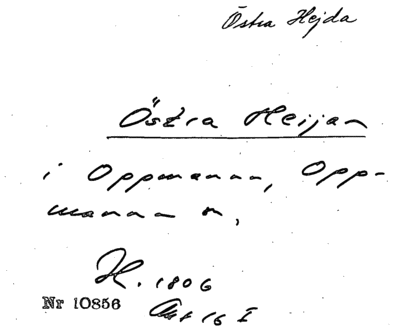 Östra Hejda
Östra Heijan
i Oppmanna, Opp-
manna sn,
H. 1806
Akt 16 I
Nr 10856